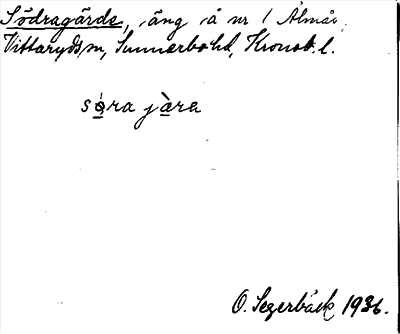 Södragärde, äng å nr 1 Älmås,
Vittaryds sn, Sunnerbo hd, Kronob. l.
sø̀ra jàra
O. Segerbäck 1936.